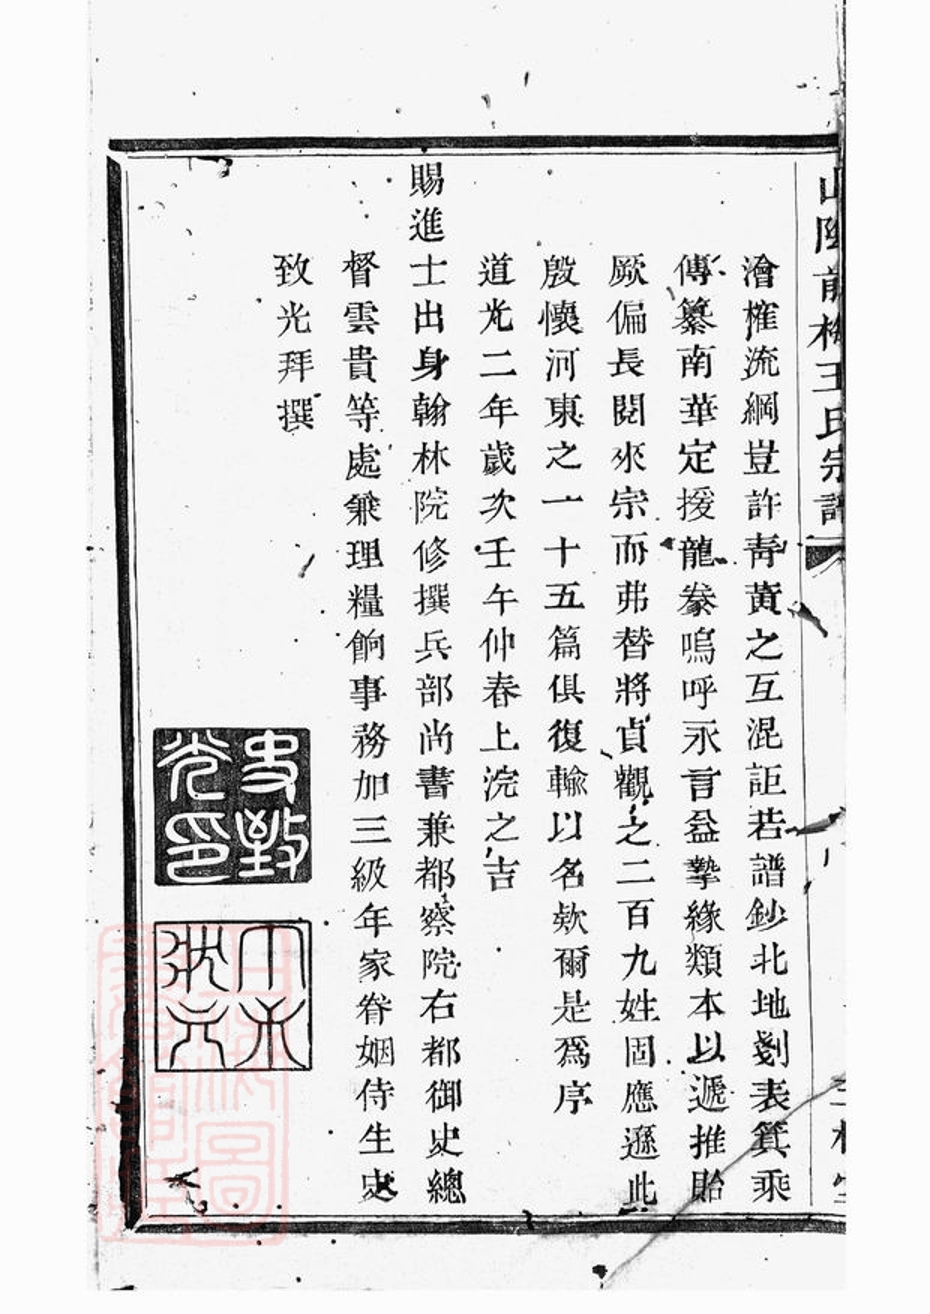 山陰前梅王氏宗譜
澮榷流綱豈許靑黃之互混詎若譜鈔北地劙表箕乘
傳纂南華定援龍豢嗚呼永言益摯緣類本以遞推貽
厥偏長閱來宗而弗替將貞觀之二百九姓固應遜此
殷懷河東之一十五篇俱復輸以名欵爾是爲序
道光二年歲次壬午仲春上浣之吉
賜進士出身翰林院修撰兵部尚書兼都察院右都御史總
督雲貴等處兼理糧餉事務加三級年家眷姻侍生史
致光拜撰
史致
光印
丁未
狀元